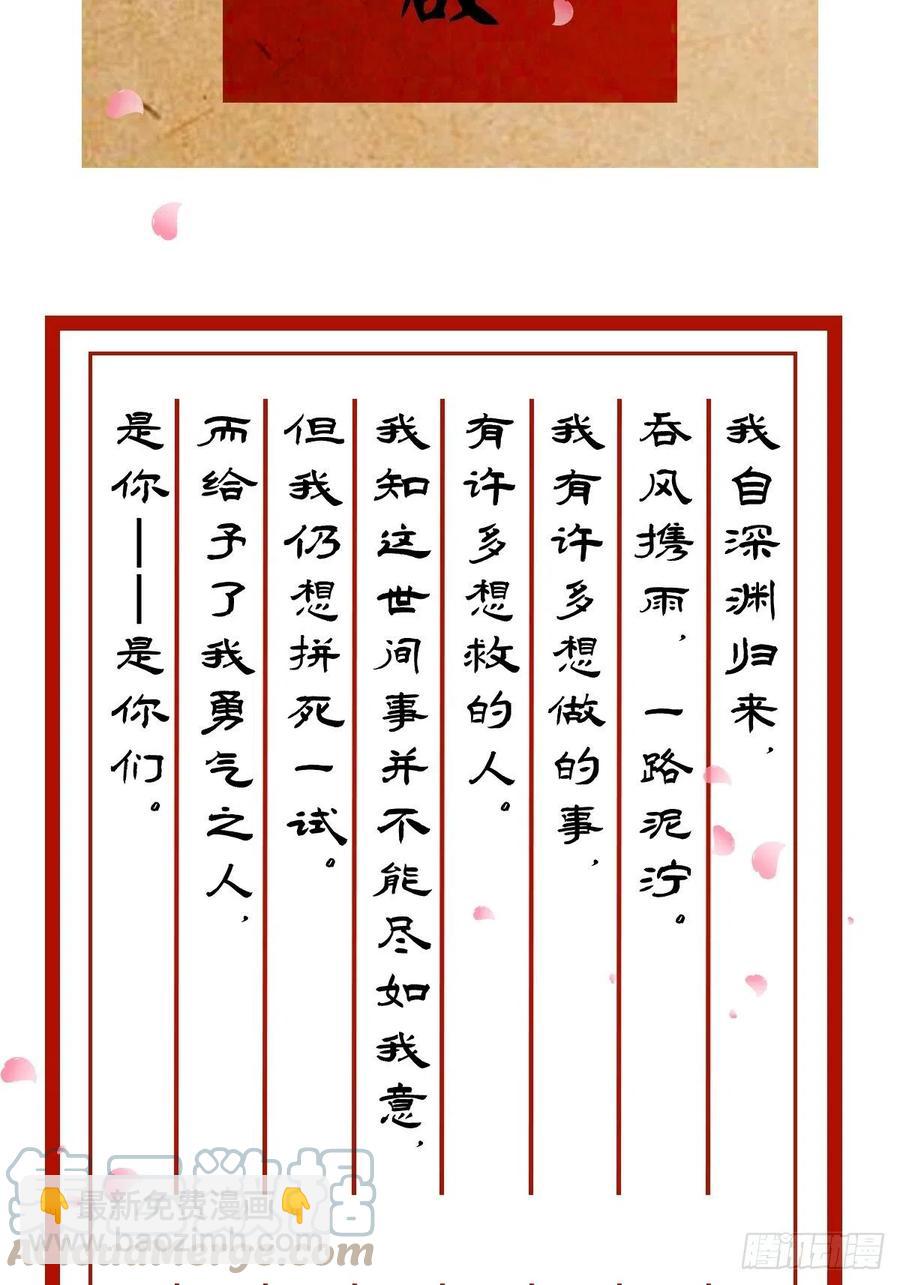 我自深渊归来，
吞风携雨，一路泥泞。
我有许多想做的事，
有许多想救的人。
我知这世间事并不能尽如我意，
但我仍想拼死一试。
而给予了我勇气之人，
是你——是你们。
👇最新免费漫画👇
www.baozimh.com
Acloudmerge.com
腾讯动漫